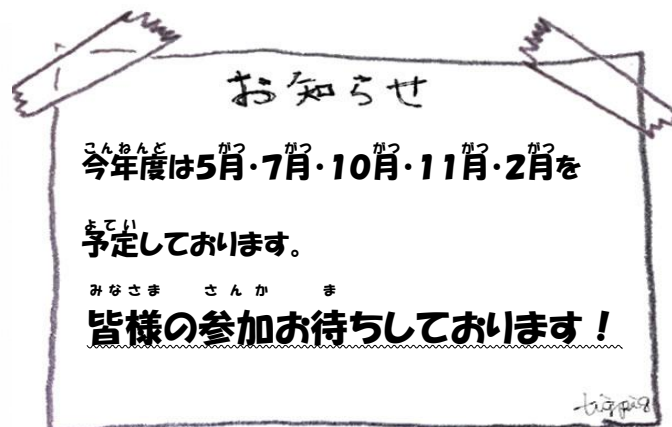 お知らせ
こんねんど がつ がつ がつ がつ がつ
今年度は5月・7月・10月・11月・2月を
よてい
予定しております。
みなさま さんか ま
皆様の参加お待ちしております！